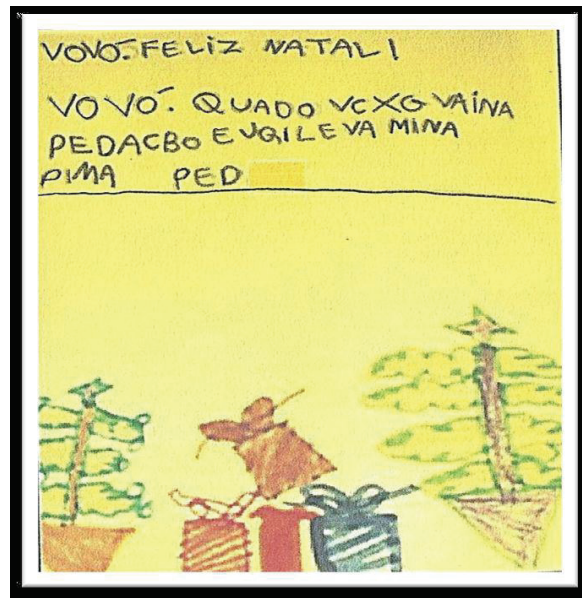 VOVÓ. FELIZ NATAL!
VOVÓ. QUADO VCXG VAINA
PEDACBO EUQILEVA MINA
PIMA PED